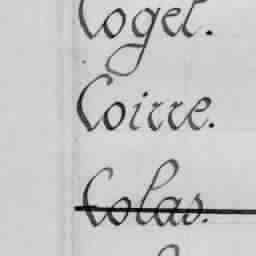 Cogel.
Coirre.
Colas.